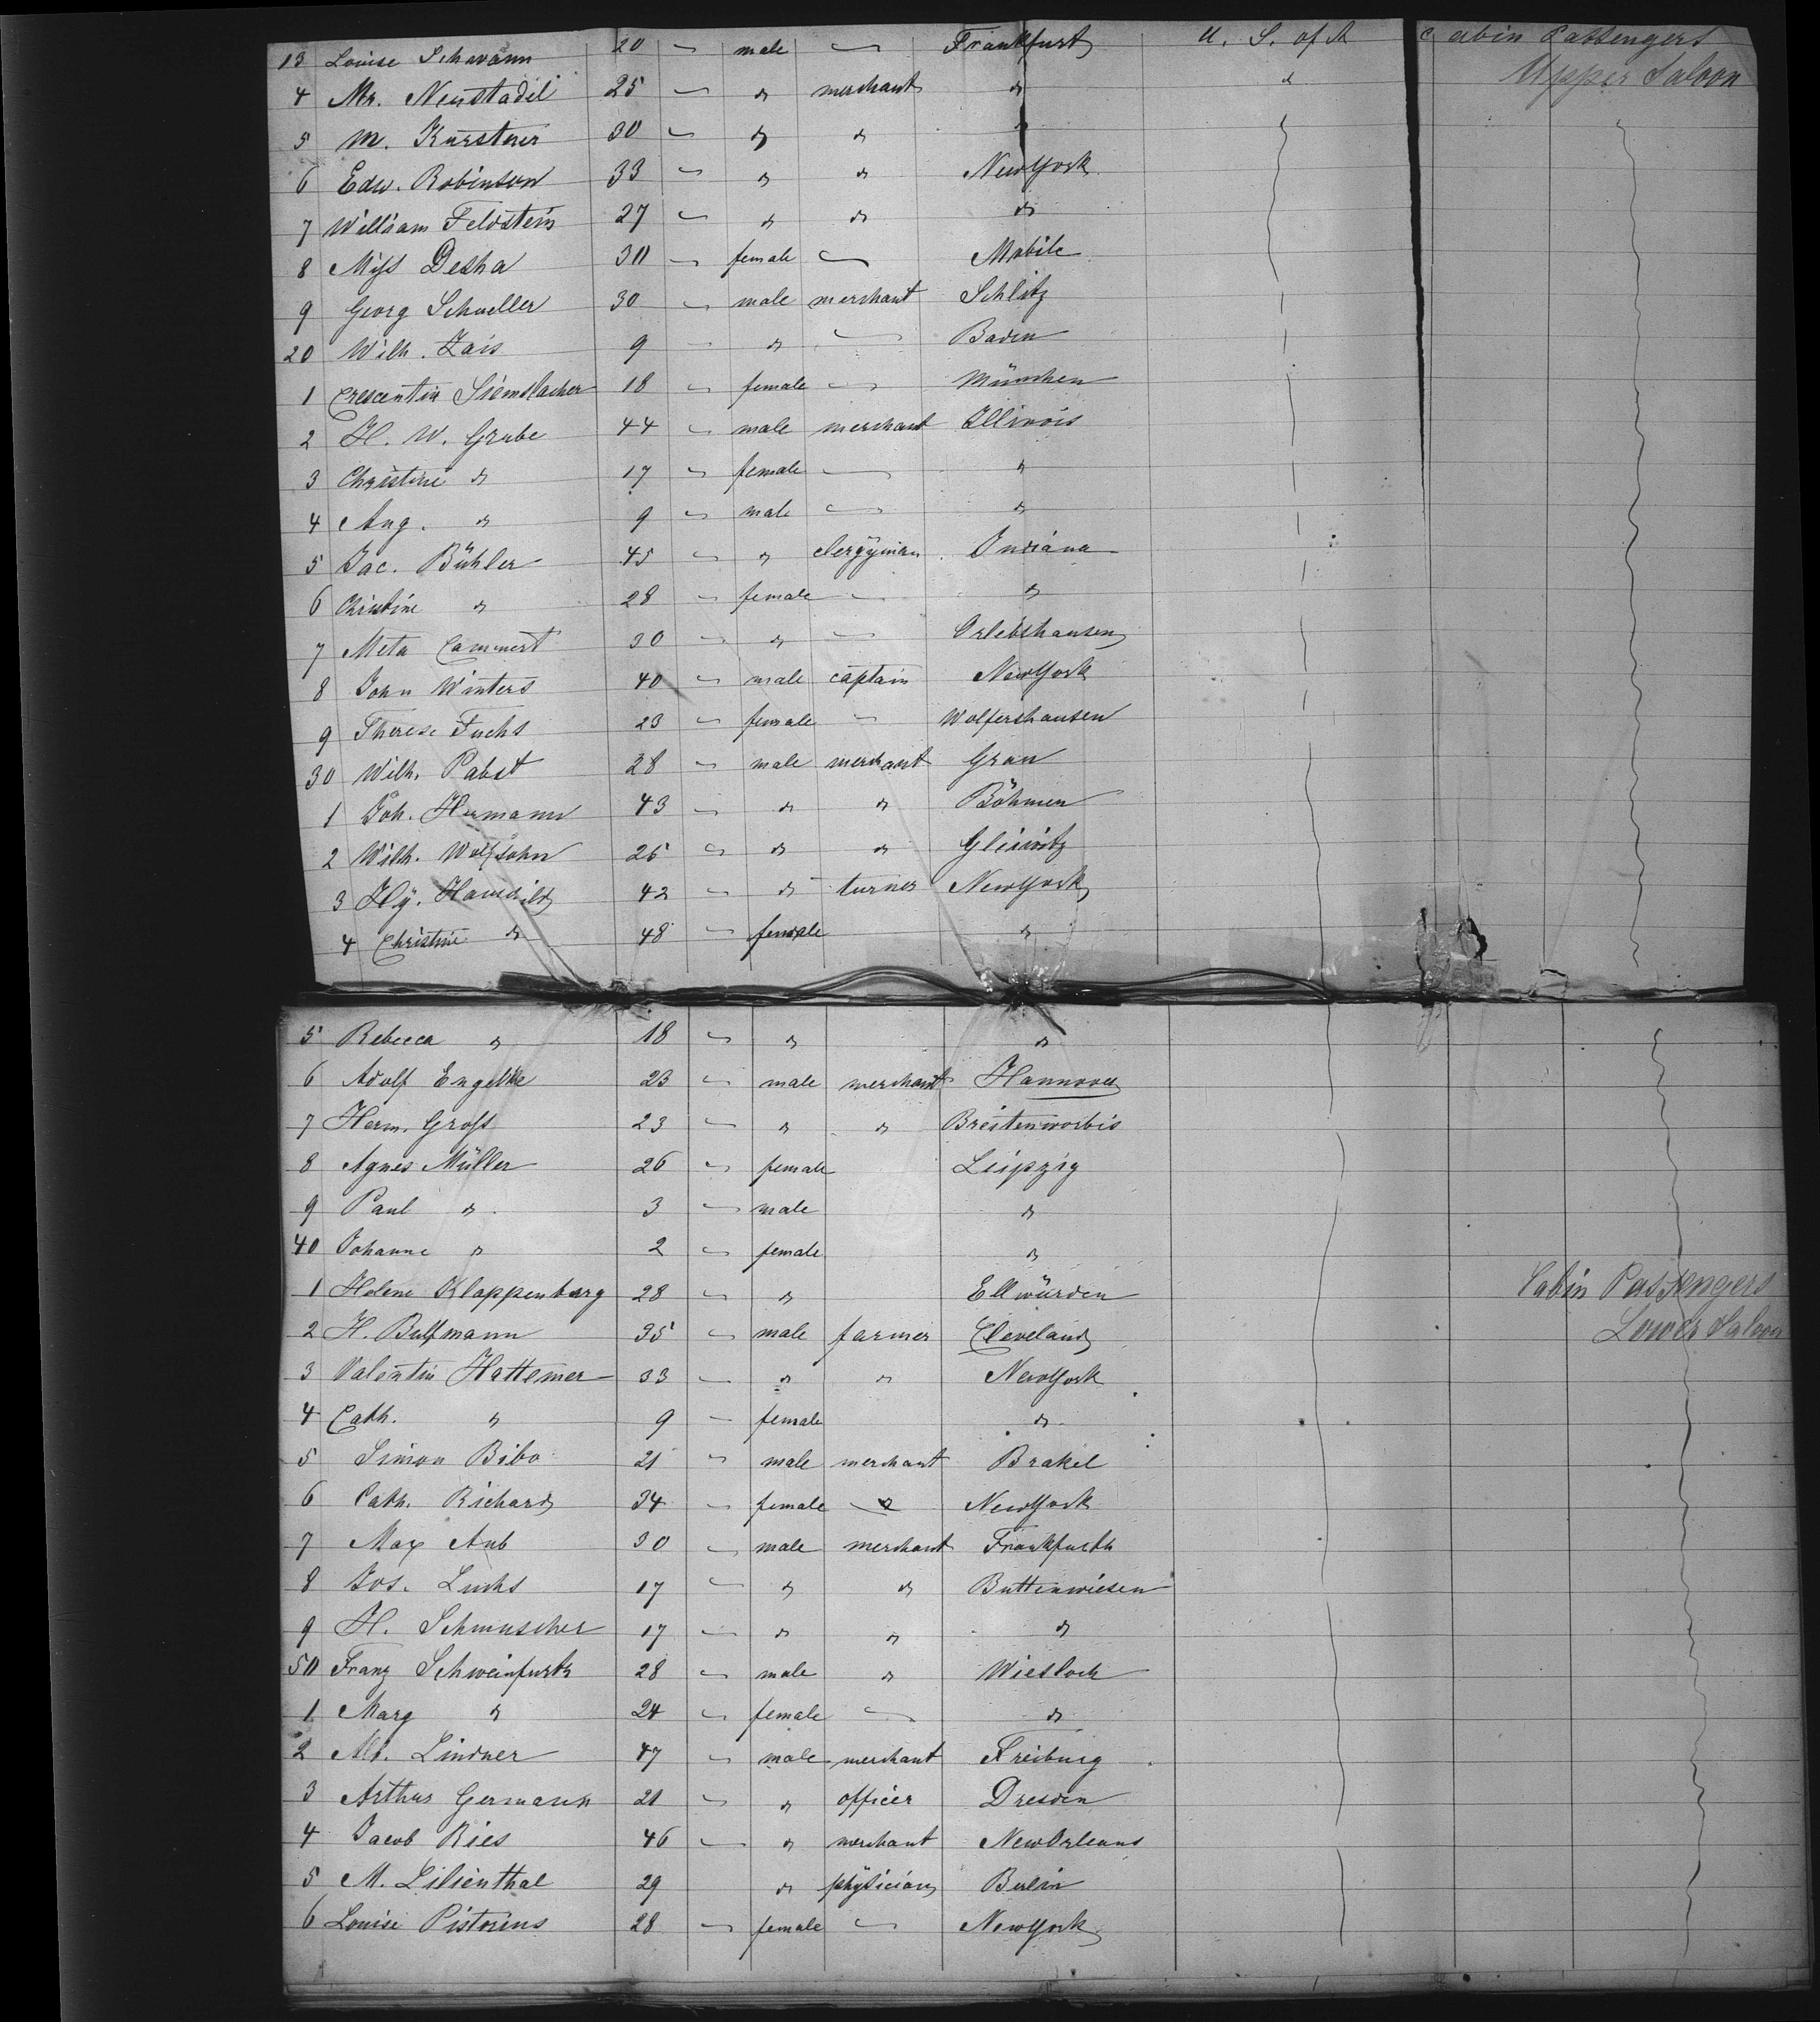 13 Louise Schwann 20 " male — Frankfurt U. S. of A Cabin Passengers
4 Mr. Neustadel 25 " " merchant " " Upper Saloon
5 M. Kürstner 30 " " " "
6 Edw. Robinson 33 " " " NewYork
7 William Feldstein 27 " " " "
8 Miss Desha 30 " female — Mobile
9 Georg Schueller 30 " male merchant Schlitz
20 Wilh. Zais 9 " " — Baden
1 Crescentia 18 " female — München
2 H. W. Grube 44 " male merchant Illinois
3 Christine " 17 " female — "
4 Aug. " 9 " male — "
5 Jac. Bühler 45 " " clergyman Indiana
6 Christine " 28 " female — "
7 Meta Cammert 30 " " —
8 John Winters 40 " male captain NewYork
9 Therese Fuchs 23 " female — Wolfershausen
30 Wilh. Pabst 28 " male merchant Gran
1 Joh. Hermann 43 " " " Böhmen
2 Wilh. Wolfsohn 26 " " " Gleiwitz
3 Hy. 42 " " turner NewYork
4 Christine " 48 " female "
5 Rebecca " 18 " " "
6 Adolf Engelke 23 " male merchant Hannover
7 Herm. Gross 23 " " " Breitenworbis
8 Agnes Müller 26 " female Leipzig
9 Paul " 3 " male "
40 Johanne " 2 " female "
1 Helene Klappenburg 28 " " Ellwürden Cabin Passengers
2 H. Bulfmann 35 " male farmer Cleveland Lower Saloon
3 Valentin Hattemer 33 " " " NewYork
4 Cath. " 9 " female "
5 Simon Bibo 21 " male merchant Brakel
6 Cath. Richard 34 " female — NewYork
7 Max Aub 30 " male merchant Frankfurth
8 Jos. Luchs 17 " " " Buttenwiesen
9 H. Schmuscher 17 " " " "
50 Franz Schweinfurth 28 " male " Wiesloch
1 Marg " 24 " female — "
2 Alb. Lindner 47 " male merchant Freiburg
3 Arthur Germann 21 " " officer Dresden
4 Jacob Ries 46 " " merchant NewOrleans
5 M. Lilienthal 29 " physician Berlin
6 Louise Pistorius 28 " female — NewYork